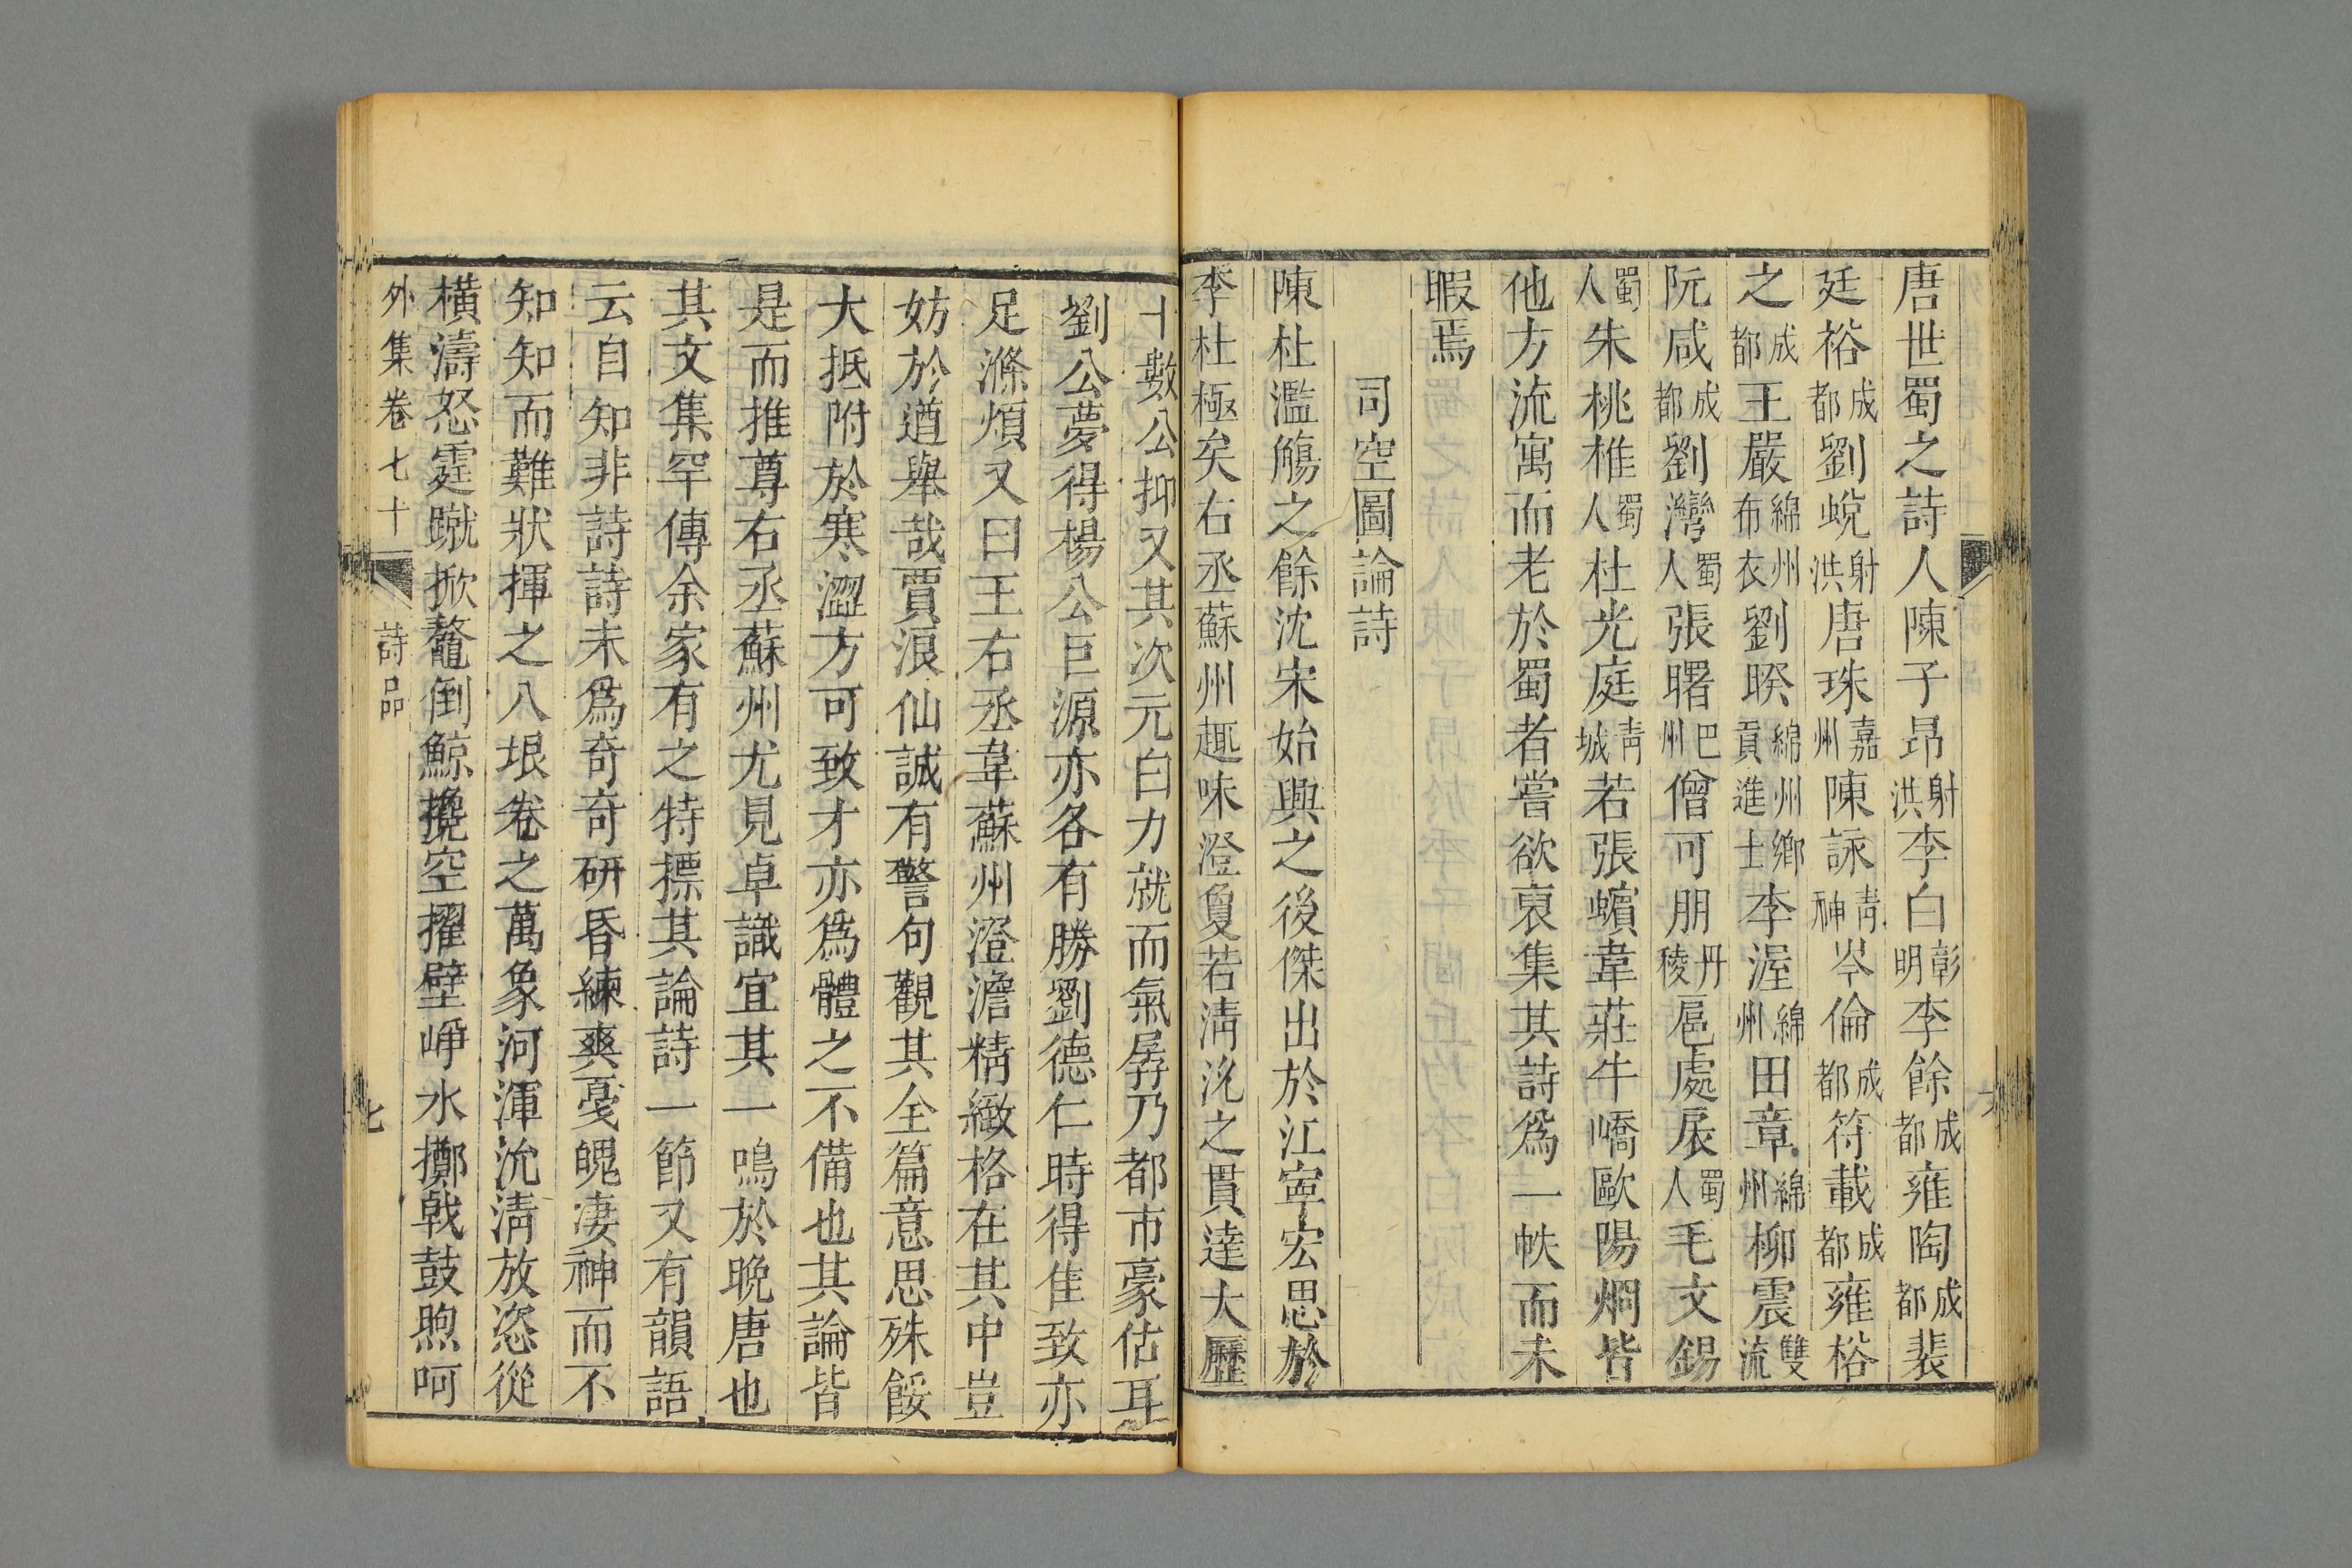 唐世蜀之詩人陳子昂射洪李白彰明李餘成都雍陶成都裴
廷裕成都劉蛻射洪唐珠嘉州陳詠青神岑倫成都符載成都雍裕
之成都王嚴綿州布衣劉暌綿州鄉貢進士李渥綿州田章綿州柳震雙流
阮咸成都劉灣蜀人張曙巴州僧可朋丹稜扈處扆蜀人毛文錫
蜀人朱桃椎蜀人杜光庭青城若張蠙韋莊牛嶠歐陽烱皆
他方流寓而老於蜀者嘗欲裒集其詩爲一帙而未
暇焉
司空圖論詩
陳杜濫觴之餘沈宋始興之後傑出於江寧宏思於
李杜極矣右丞蘇州趣味澄夐若清沇之貫達大歷
十數公抑又其次元白力就而氣孱乃都市豪估耳
劉公夢得楊公巨源亦各有勝劉德仁時得佳致亦
足滌煩又曰王右丞韋蘇州澄澹精緻格在其中豈
妨於遒舉哉賈浪仙誠有警句觀其全篇意思殊餒
大抵附於寒澀方可致才亦爲體之不備也其論皆
是而推尊右丞蘇州尤見卓識宜其一鳴於晚唐也
其文集罕傳余家有之特摽其論詩一節又有韻語
云自知非詩詩未爲奇奇研昏練爽戛魄凄神而不
知知而難狀揮之八垠卷之萬象河渾沇清放恣從
橫濤怒霆蹴掀鰲倒鯨攙空擢壁崢氷擲戟鼓煦呵
外集卷七十
詩品
七
六